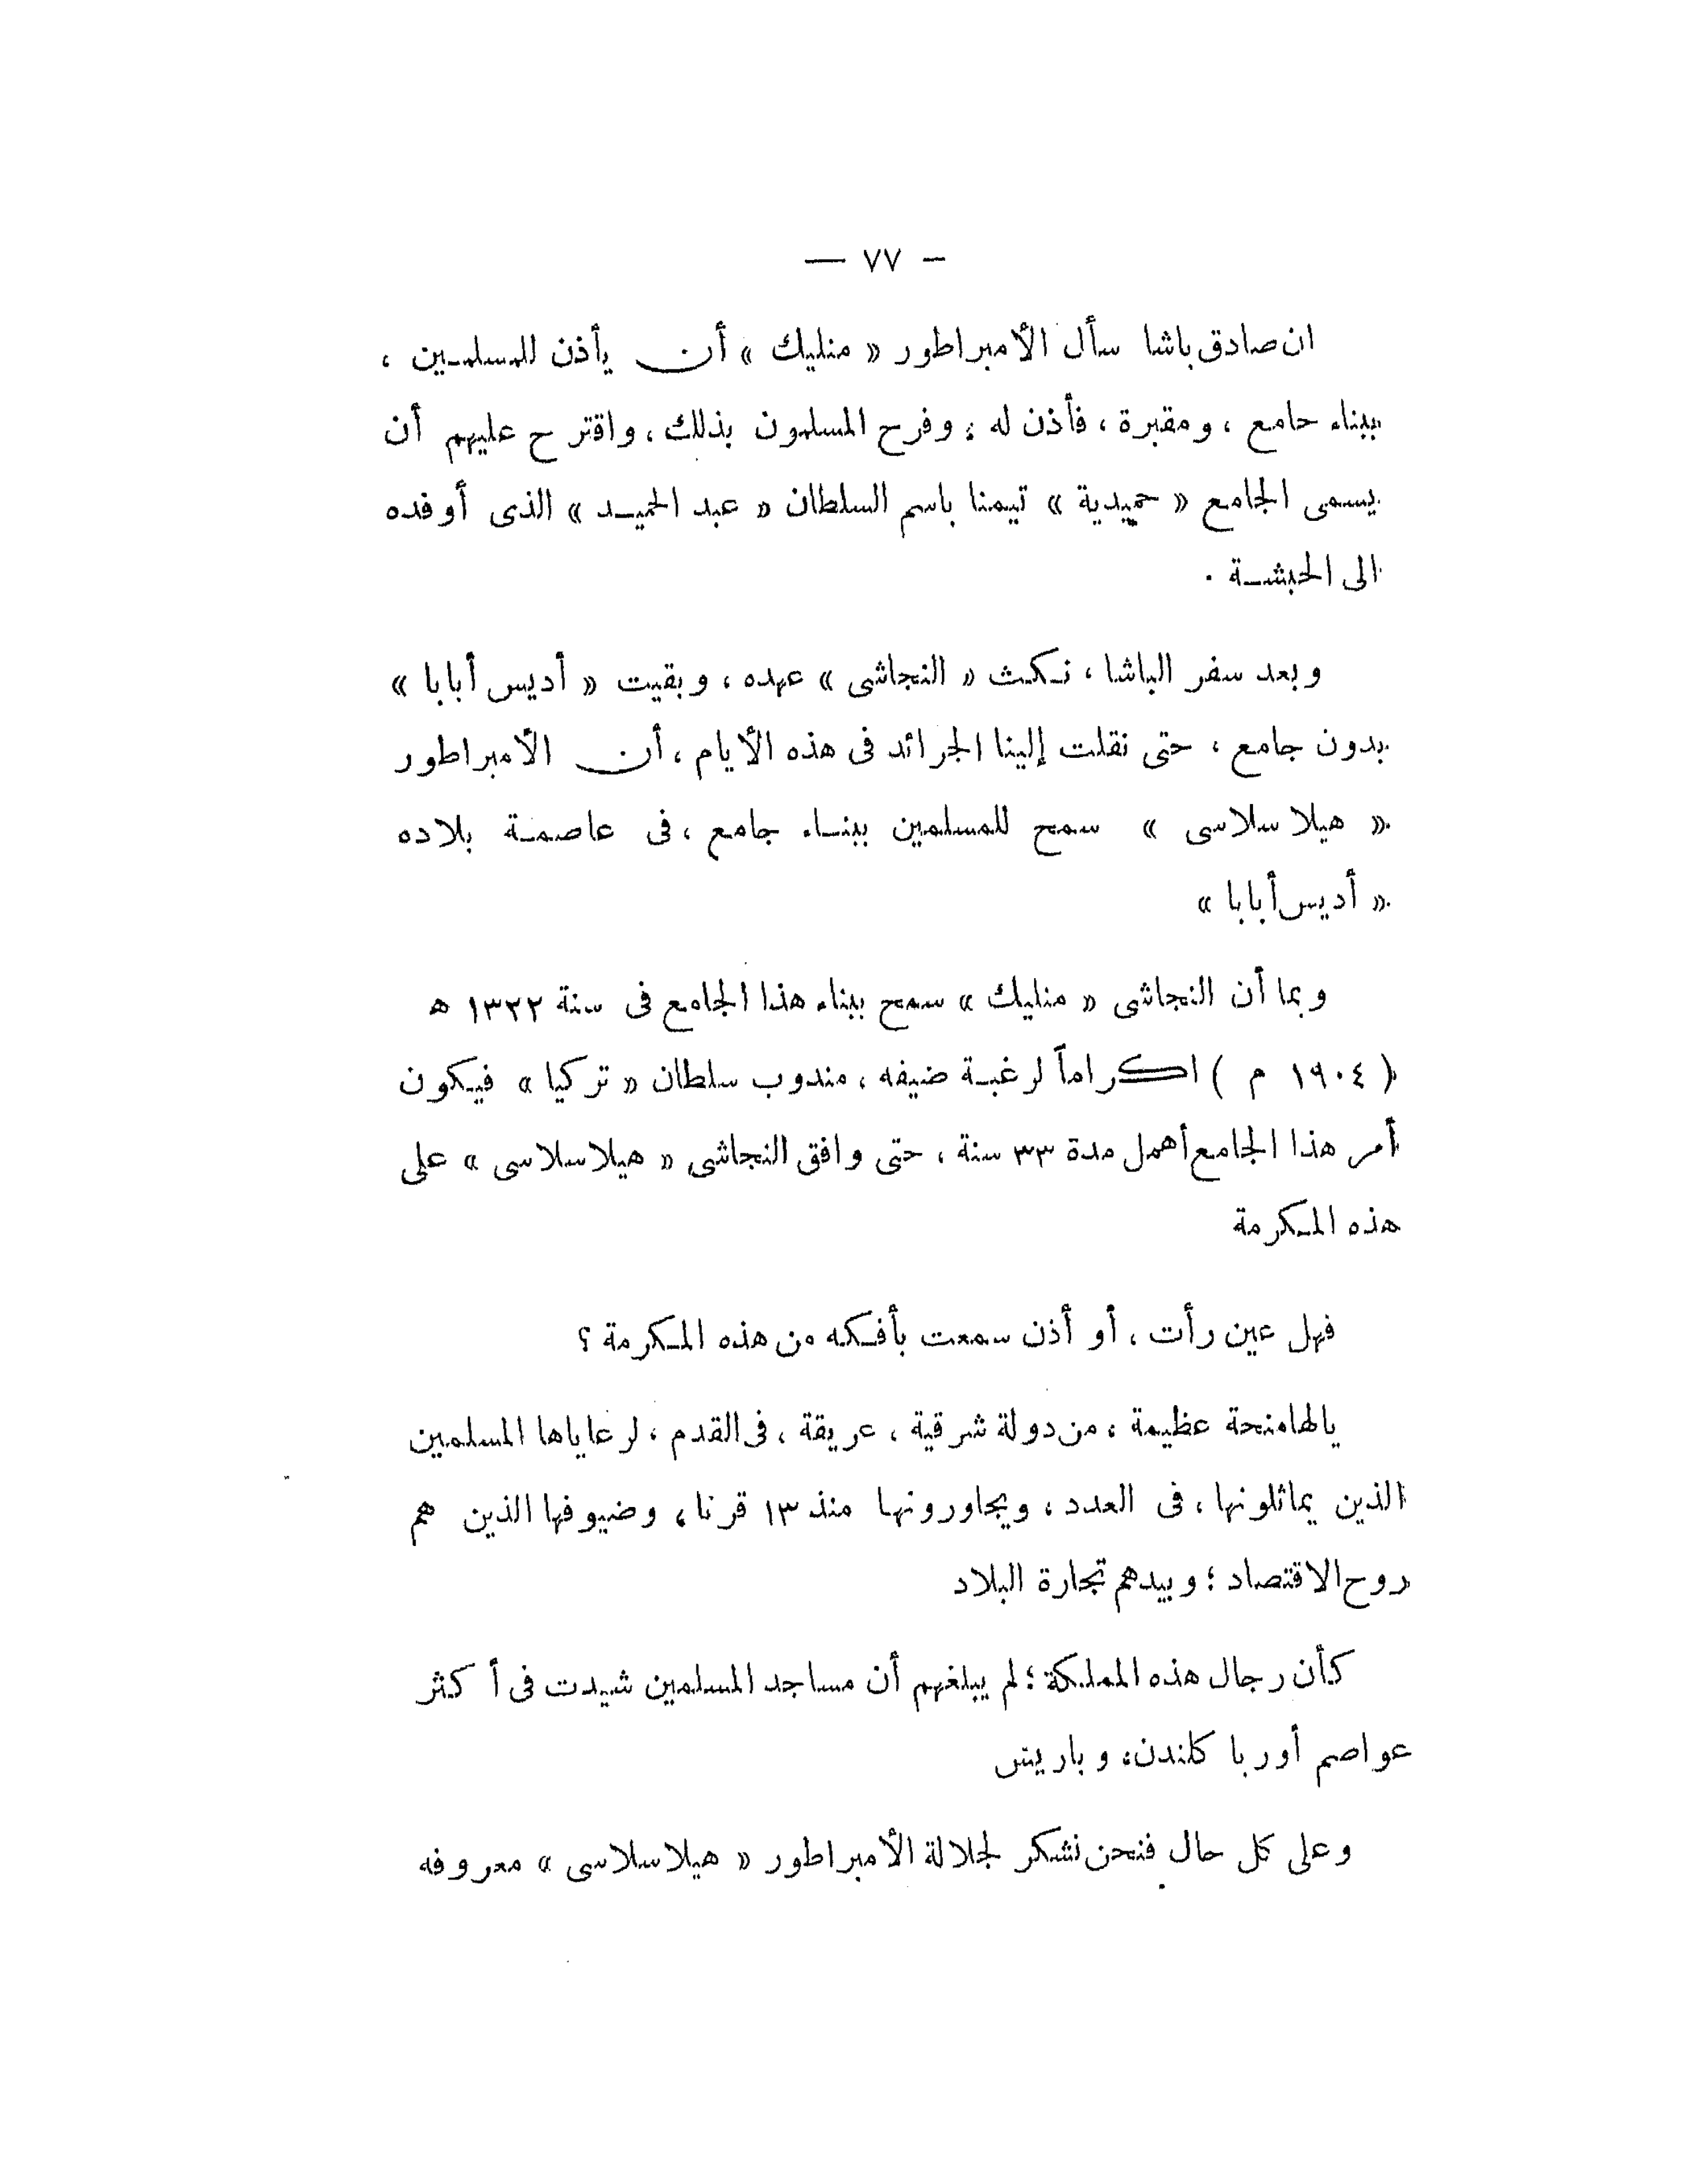 — ٧٧ —
ان صادق باشا سأل الأمبراطور « منليك » أن يأذن للمسلمين ،
ببناء جامع ، ومقبرة ، فأذن له ؛ وفرح المسلمون بذلك ، واقترح عليهم أن
يسمى الجامع « حميدية » تيمنا باسم السلطان « عبد الحميد » الذى أوفده
الى الحبشة .
وبعد سفر الباشا ، نكث « النجاشى » عهده ، وبقيت « أديس أبابا »
بدون جامع ، حتى نقلت إلينا الجرائد فى هذه الأيام ، أن الأمبراطور
« هيلا سلاسى » سمح للمسلمين ببناء جامع ، فى عاصمة بلاده
« أديس أبابا »
وبما أن النجاشى « منليك » سمح ببناء هذا الجامع فى سنة ١٣٢٢ ه
( ١٩٠٤ م ) اكراماً لرغبة ضيفه ، مندوب سلطان « تركيا » فيكون
أمر هذا الجامع أهمل مدة ٣٣ سنة ، حتى وافق النجاشى « هيلاسلاسى » على
هذه المكرمة
فهل عين رأت ، أو أذن سمعت بأفكه من هذه المكرمة ؟
يالها منحة عظيمة ، من دولة شرقية ، عريقة ، فى القدم ، لرعاياها المسلمين
الذين يماثلونها ، فى العدد ، ويجاورونها منذ ١٣ قرنا ، وضيوفها الذين هم
روح الاقتصاد ؛ وبيدهم تجارة البلاد
كأن رجال هذه المملكة ؛ لم يبلغهم أن مساجد المسلمين شيدت فى أكثر
عواصم أوربا كلندن ، وباريس
وعلى كل حال فنحن نشكر لجلالة الأمبراطور « هيلاسلاسى » معروفه